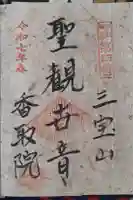 三宝山
聖観世音
令和七年春
香取院